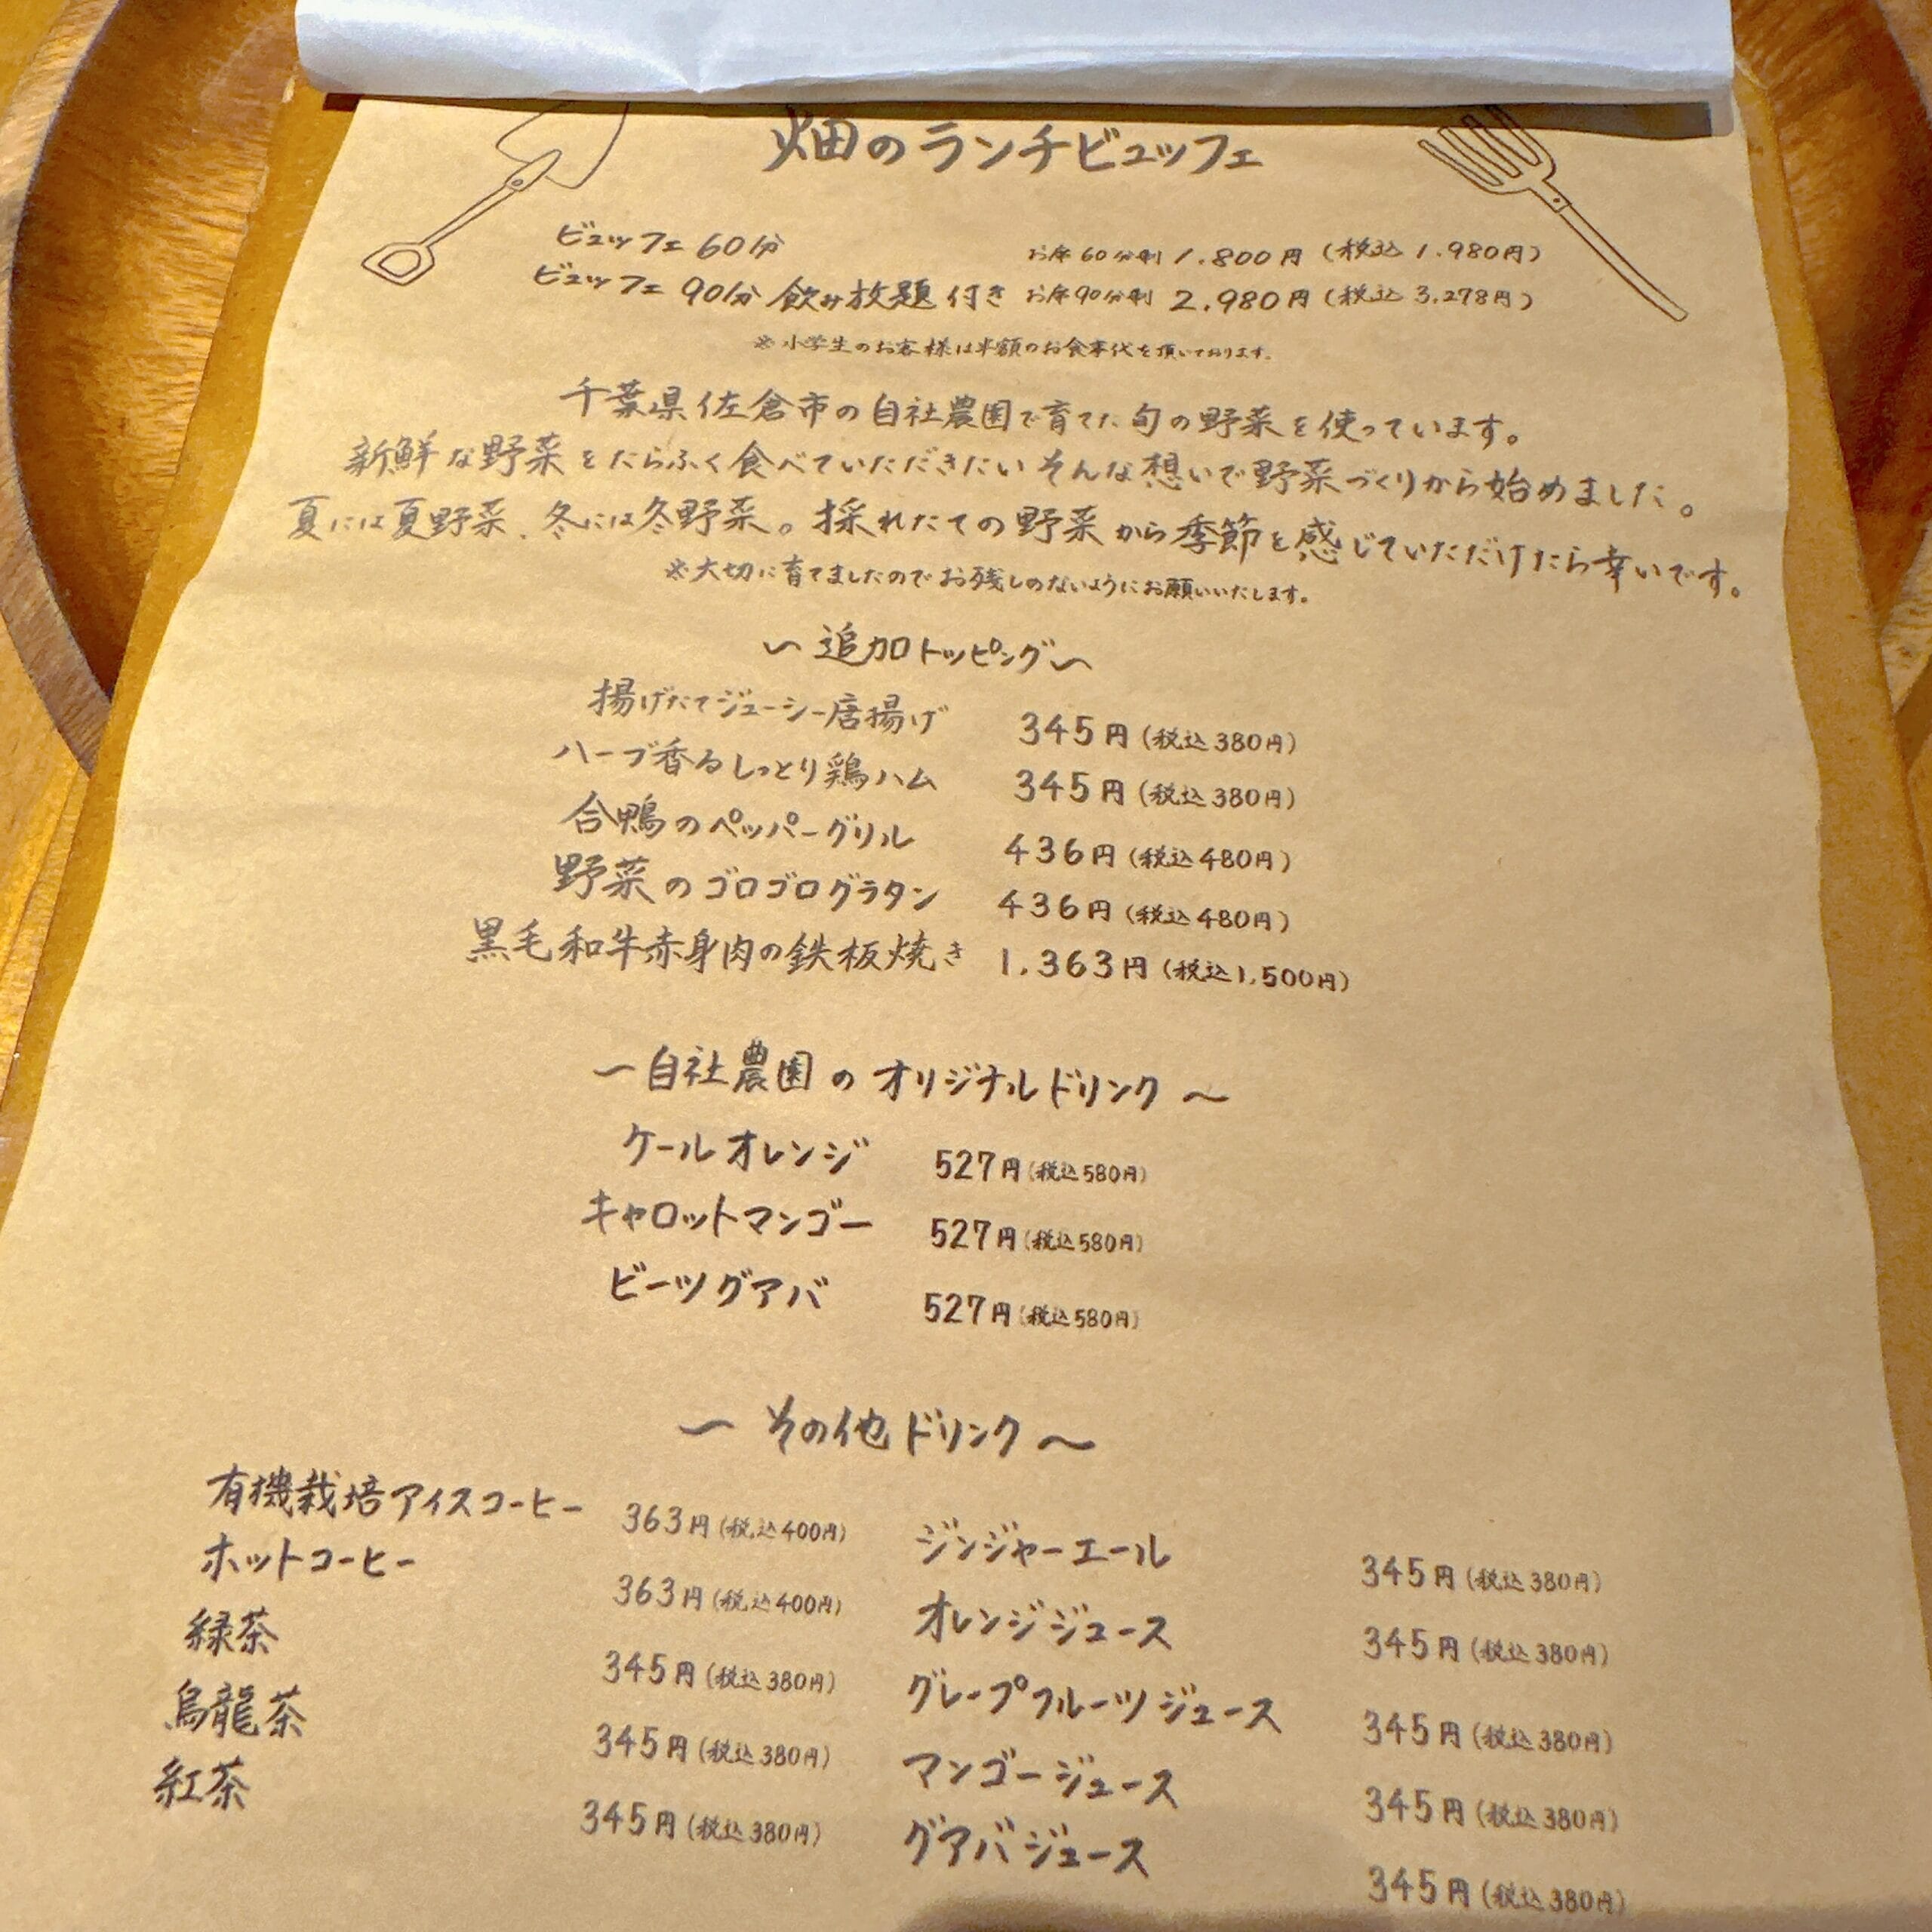 畑のランチビュッフェ
ビュッフェ 60分 お席60分制 1.800円 (税込 1.980円)
ビュッフェ 90分 飲み放題付き お席90分制 2.980円 (税込 3.278円)
※小学生のお客様は半額のお食事代を頂いております。
千葉県佐倉市の自社農園で育てた旬の野菜を使っています。
新鮮な野菜をたらふく食べていただきたいそんな想いで野菜づくりから始めました。
夏には夏野菜、冬には冬野菜。採れたての野菜から季節を感じていただけたら幸いです。
※大切に育てましたのでお残しのないようにお願いいたします。
〜追加トッピング〜
揚げたてジューシー唐揚げ 345円 (税込380円)
ハーブ香るしっとり鶏ハム 345円 (税込380円)
合鴨のペッパーグリル 436円 (税込480円)
野菜のゴロゴログラタン 436円 (税込480円)
黒毛和牛赤身肉の鉄板焼き 1,363円 (税込1,500円)
〜自社農園のオリジナルドリンク〜
ケールオレンジ 527円 (税込580円)
キャロットマンゴー 527円 (税込580円)
ビーツグアバ 527円 (税込580円)
〜その他ドリンク〜
有機栽培アイスコーヒー 363円 (税込400円)
ホットコーヒー 363円 (税込400円)
緑茶 345円 (税込380円)
烏龍茶 345円 (税込380円)
紅茶 345円 (税込380円)
ジンジャーエール 345円 (税込380円)
オレンジジュース 345円 (税込380円)
グレープフルーツジュース 345円 (税込380円)
マンゴージュース 345円 (税込380円)
グアバジュース 345円 (税込380円)